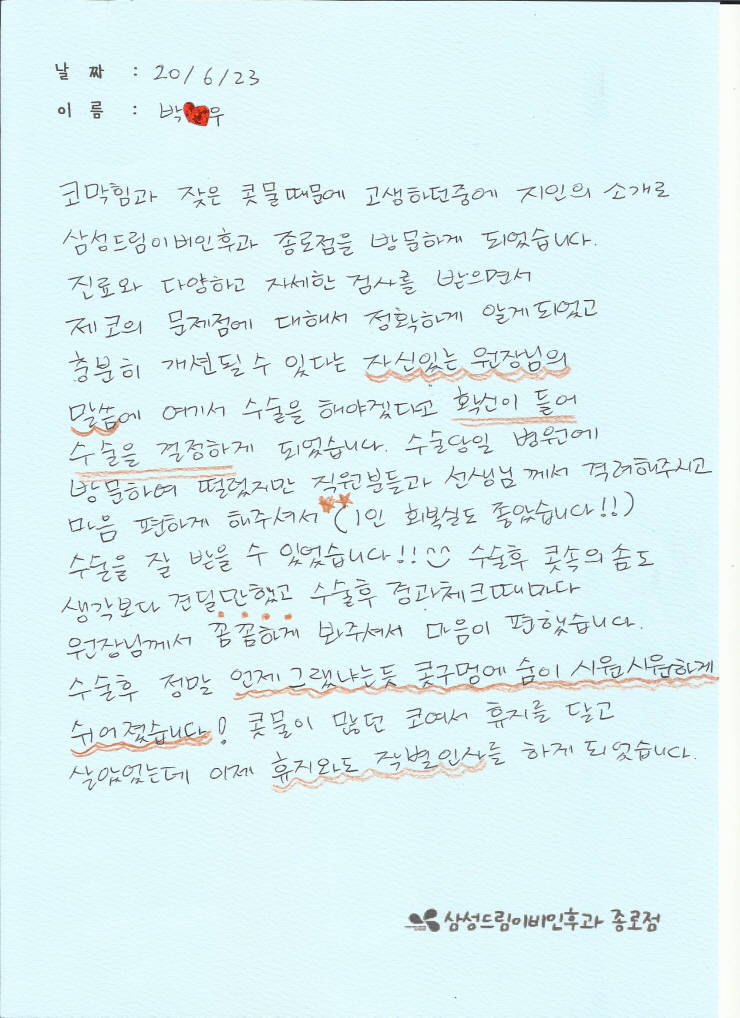 날 짜 : 20/6/23
이 름 : 박 우
코막힘과 잦은 콧물때문에 고생하던중에 지인의 소개로
삼성드림이비인후과 종로점을 방문하게 되었습니다.
진료와 다양하고 자세한 검사를 받으면서
제 코의 문제점에 대해서 정확하게 알게되었고
충분히 개션될 수 있다는 자신있는 원장님의
말씀에 여기서 수술을 해야겠다고 확신이 들어
수술을 결정하게 되었습니다. 수술당일 병원에
방문하여 떨렸지만 직원분들과 선생님께서 격려해주시고
마음 편하게 해주셔서 (1인 회복실도 좋았습니다!!)
수술을 잘 받을 수 있었습니다!! 수술후 콧속의 솜도
생각보다 견딜만했고 수술후 경과체크때마다
원장님께서 꼼꼼하게 봐주셔서 마음이 편했습니다.
수술후 정말 언제그랬냐는듯 콧구멍에 숨이 시원시원하게
쉬어졌습니다! 콧물이 많던 코여서 휴지를 달고
살았었는데 이제 휴지와도 작별인사를 하게 되었습니다.
삼성드림이비인후과 종로점